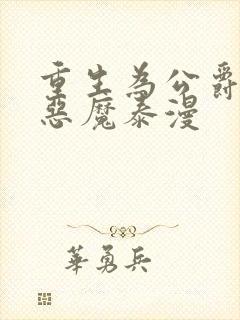 重生為公爵
惡魔泰漫
華勇兵